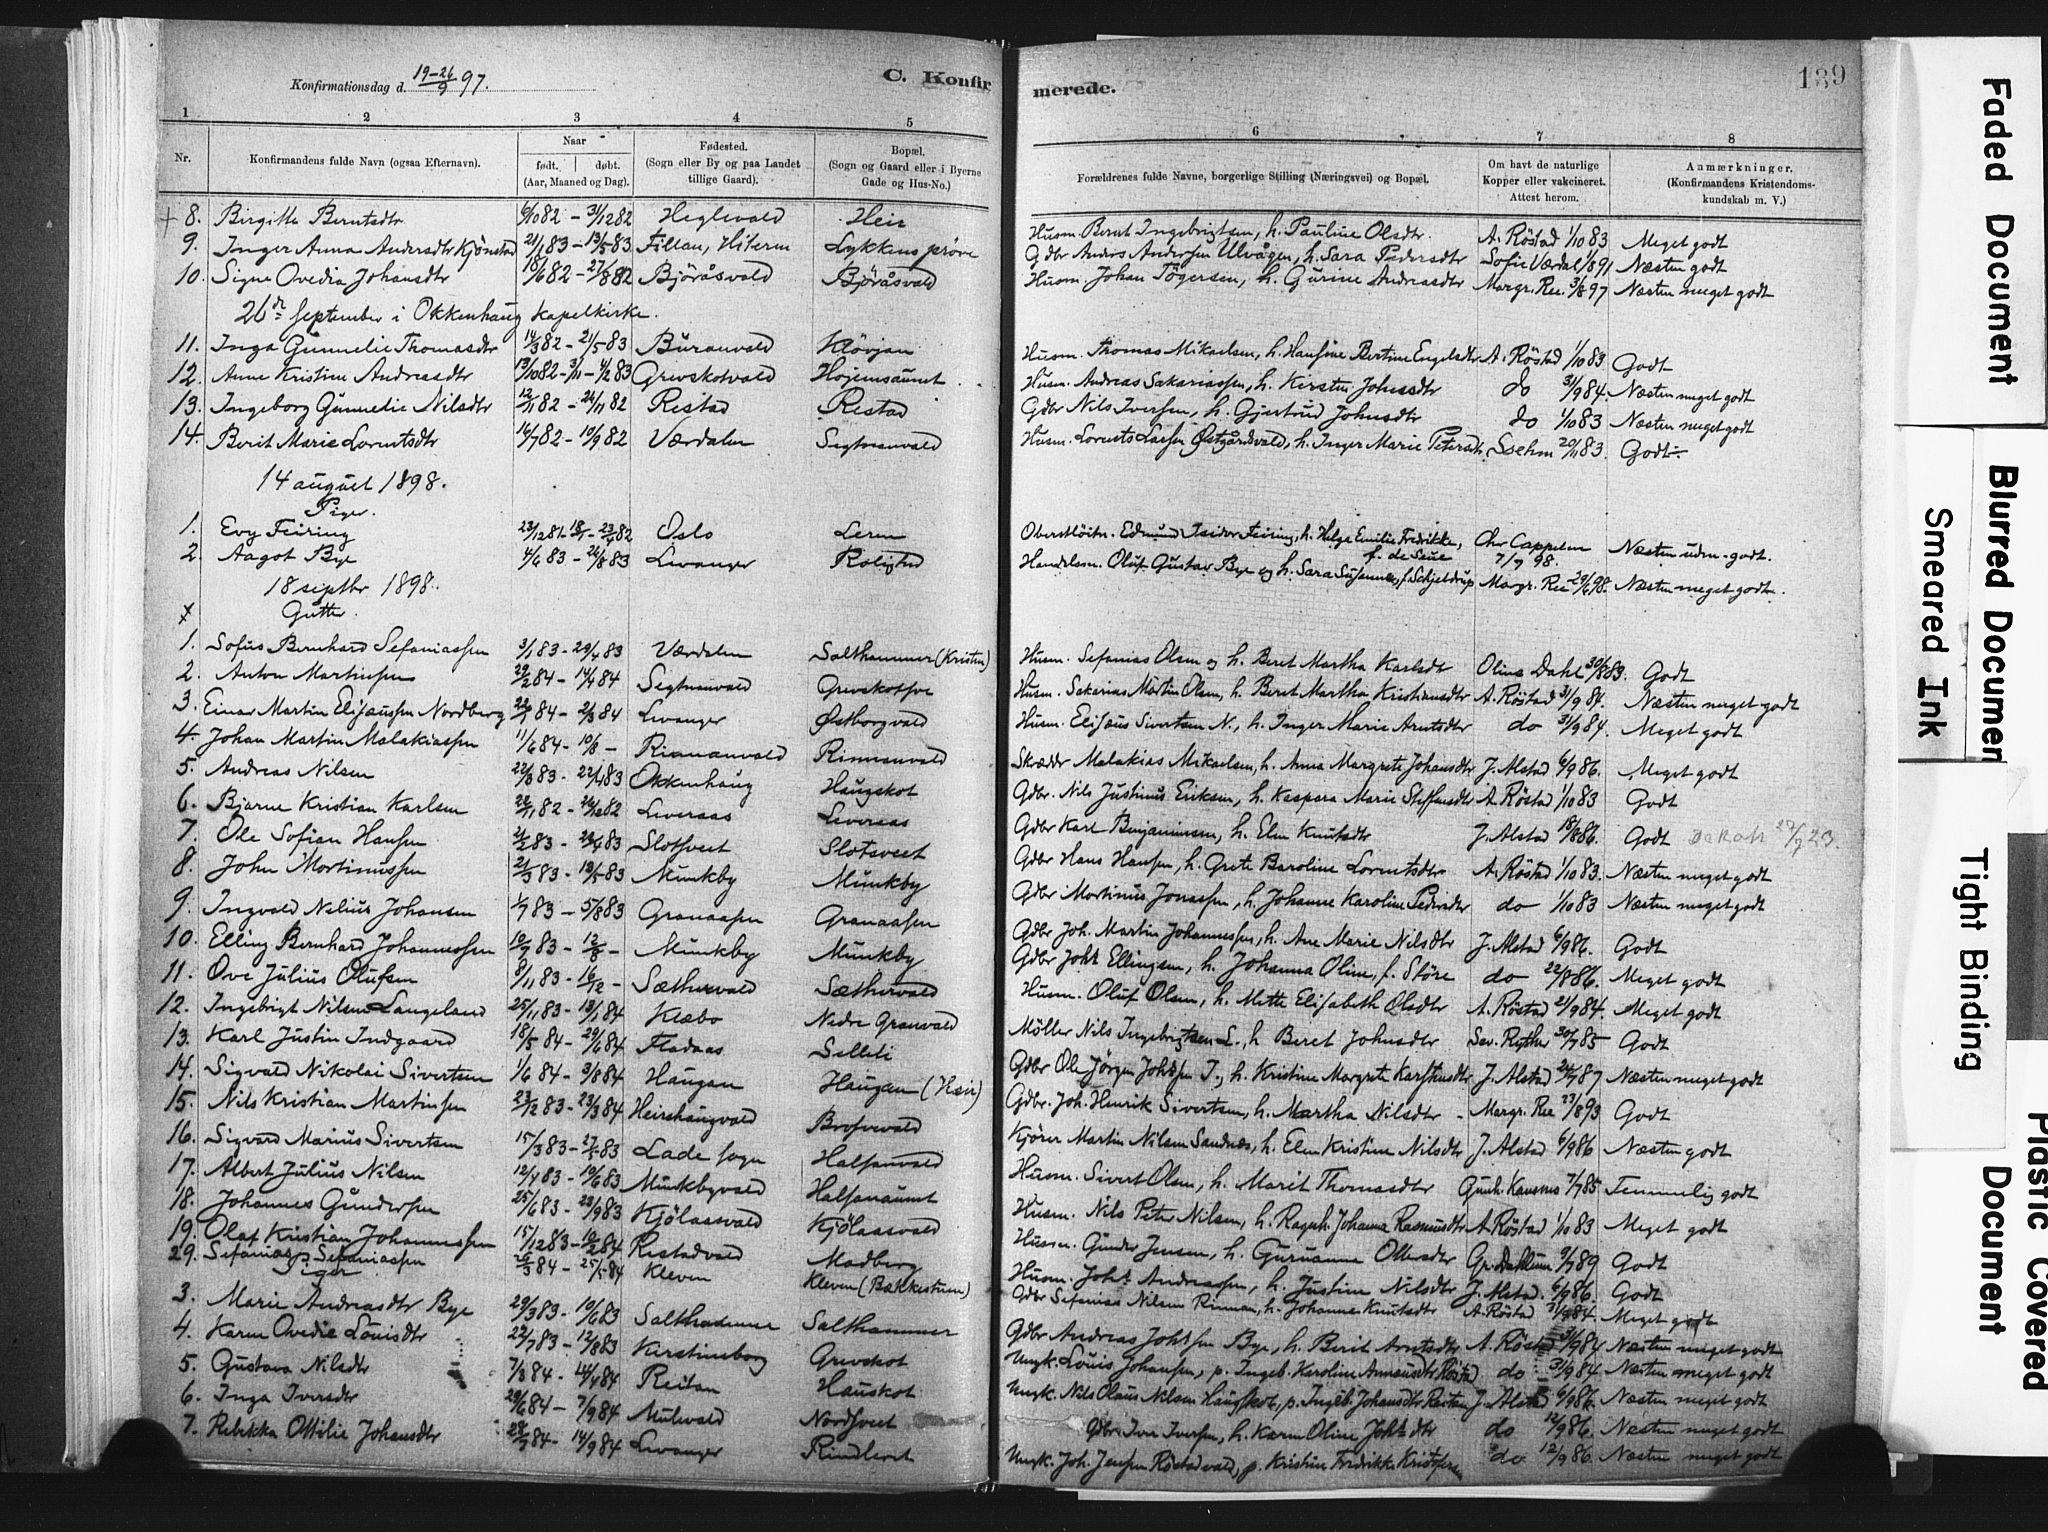 Konfirmationsdag d. 19-26/9 97.
C. Konfirmerede.
139
1 2 3 4 5 6 7 8
Nr.
Konfirmandens fulde Navn (ogsaa Efternavn).
Naar
født. døbt.
(Aar, Maaned og Dag).
Fødested.
(Sogn eller By og paa Landet
tillige Gaard).
Bopæl.
(Sogn og Gaard eller i Byerne
Gade og Hus-No.)
Forældrenes fulde Navne, borgerlige Stilling (Næringsvei) og Bopæl.
Om havt de naturlige
Kopper eller vakcineret.
Attest herom.
Anmærkninger.
(Konfirmandens Kristendoms-
kundskab m. V.)
8. Birgitte Berntsdtr 6/10 82 - 31/12 82 Heglevald Heir Husm Bernt Ingebrigtsen, h. Pauline Olsdtr. A. Röstad 1/10 83 Meget godt
9. Inger Anna Andersdtr Kjönstad 21/1 83 - 13/5 83 Fillan, Hiteren Lykkens prøve Gdbr Anders Andersen Ulvågen, h. Sara Pedersdtr Sofie Værdal 1/8 91 Næsten godt
10. Signe Ovedia Johansdtr 18/6 82 - 27/8 82 Björåsvald Björåsvald Husm. Johan Tögersen, h. Gurine Andreasdtr Margr. Ree 3/8 97 Næsten meget godt
26de September i Okkenhaug kapelkirke.
11. Inga Gunnelie Thomasdtr 14/3 82 - 21/5 83 Buranvald Klövjan Husm. Thomas Mikaelsen, h. Hansine Bertine Engelsdtr A. Röstad 1/10 83 Godt
12. Anne Kristine Andreasdtr 13/10 82 - 4/2 83 Grevskotvald Hojemsaunet Husm. Andreas Sakariassen, h. Kirsten Johnsdtr do 31/9 84. Næsten meget godt
13. Ingeborg Gunnedie Nilsdtr 12/11 82 - 26/11 82 Restad Restad Gdbr Nils Iversen, h. Gjertrud Johnsdtr do 1/10 83 Næsten meget godt
14. Berit Marie Lorntsdtr 16/7 82 - 10/9 82 Værdalen Segtnanvald Husm. Lornts Larsen Østgårdsvald, h. Inger Marie Petersdtr 20/11 83. Godt ÷
14 august 1898.
Piger.
1. Evy Feiring 23/12 81 - 23/4 82 Oslo Leren Oberstlöitn. Edmund Isidor Feiring, h. Helga Emilie Fredrikke, f. de Seue Chr Cappelen 7/7 98. Næsten uden - godt.
2. Aagot Bye 4/6 83 - 26/8 83 Levanger Rolighed Handelsm. Oluf Gustav Bye og h. Sara Susanna, f. Schjeldrup Margr. Ree 29/6 98. Næsten meget godt.
18 septbr 1898.
Gutter.
1. Sofus Bernhard Sefaniassen 3/1 83 - 29/4 83 Værdalen Salthammer (Kristen) Husm. Sefanias Olsen og h. Beret Martha Karlsdtr Olina Dahl 30/8 83. Godt
2. Anton Martinsen 29/2 84 - 14/4 84 Segtnanvald Grevskotsve Husm. Sakarias Martin Olsen, h. Beret Martha Kristiansdtr A. Röstad 31/9 84. Næsten meget godt
3. Einar Martin Elisæussen Nordberg 22/1 84 - 2/3 84 Levanger Østborgvald Husm. Elisæus Sivertsen N., h. Inger Marie Arntsdtr do 31/9 84. Meget godt
4. Johan Martin Malakiassen 11/6 84 - 10/8 - Rinnanvald Rinnanvald Skrædr Malakias Mikaelsen, h. Anna Margrete Johansdtr J. Alstad 6/9 86. Meget godt
5. Andreas Nilsen 22/3 83 - 22/4 83 Okkenhaug Haugskot Gdbr. Nils Justinus Eriksen, h. Kaspara Marie Steffensdtr A. Röstad 1/10 83 Godt
6. Bjarne Kristian Karlsen 22/11 82 - 26/12 82 Leveraas Leveraas Gdbr Karl Benjaminsen, h. Elen Knutsdtr J. Alstad 18/8 86. Godt 27/7 23.
7. Ole Sofian Hansen 2/2 83 - 29/4 83 Slotsveet Slotsveet Gdbr Hans Hansen, h. Grete Baroline Lorntsdtr A. Röstad 1/10 83. Næsten meget godt
8. John Mortinussen 21/3 83 - 13/5 83 Munkby Munkby Gdbr Mortinus Jonassen, h. Johanne Karoline Pedersdtr do 1/10 83 Næsten meget godt
9. Ingvald Nelius Johansen 1/7 83 - 5/8 83 Granaasen Granaasen Gdbr Joh. Martin Johannessen, h. Ane Marie Nilsdtr J. Alstad 6/9 86. Godt
10. Elling Bernhard Johannessen 10/7 83 - 12/8 - Munkby Munkby Gdbr Johs Ellingsen, h. Johanna Oline, f. Störe do 22/8 86. Meget godt
11. Ove Julius Olufsen 8/11 83 - 16/12 - Sæthervald Sæthervald Husm. Oluf Olsen, h. Mette Elisabeth Olsdtr A. Röstad 21/9 84. Meget godt
12. Ingebrigt Nilsen Langeland 25/11 83 - 13/1 84 Klæbo Nedre Granvald Möller Nils Ingebrigtsen L., h Beret Johnsdtr Sev. Rother 30/7 85 Godt
13. Karl Justin Indgaard 18/5 84 - 29/6 84 Fladaas Selleli Gdbr Ole Jörgen Johssen I., h. Kristine Margrete Karstensdtr J. Alstad 24/7 87 Næsten meget godt
14. Sigvald Nikolai Sivertsen 1/6 84 - 3/8 84 Haugan Haugan (Heir) Gdbr. Joh. Henrik Sivertsen, h. Martha Nilsdtr - Margr. Ree 23/8 93 Godt
15. Nils Kristian Martinsen 23/12 83 - 23/3 84 Heirshaugvald Brofovald Kjörer Martin Nilsen Sandnes, h. Elen Kristine Nilsdtr J. Alstad 6/9 86 Næsten godt
16. Sigvard Marius Sivertsen 15/3 83 - 27/5 83 Lade sogn Halsanvald Husm. Sivert Olsen, h. Marit Thomasdtr 7/7 85 Temmelig godt
17. Albert Julius Nilsen 12/4 83 - 10/6 83 Munkbyvald Halsanaunet Husm. Nils Peter Nilsen, h. Ragnh. Johanna Rasmusdtr A. Röstad 1/10 83 Meget godt
18. Johannes Gundersen 25/6 83 - 23/9 83 Kjölaasvald Kjölaasvald Husm. Gunder Jensen, h. Guruanna Ollersdtr Gr. Dahlum 9/7 89 Godt
19. Olaf Kristian Johannessen 15/12 83 - 10/2 84 Restadvald Madberg Husm. Johs Andreassen, h. Justine Nilsdtr J. Alstad. 6/9 86. Godt
29. Sefanias Sefaniassen 26/3 84 - 25/5 84 Kleven Kleven (Bækkestuen) Gdbr Sefanias Nilsen Rinnan, h. Johanna Knutsdtr A. Röstad 31/9 84. Meget godt
Piger
3. Marie Andreasdtr Bye 29/3 83 - 10/6 83 Salthammer Salthammer Gdbr Andreas Johssen Bye, h. Berit Arntsdtr A. Röstad 31/9 84 Næsten meget godt
4. Karen Ovedie Louisdtr 22/7 83 - 12/8 83 Kirstineborg Grevskot Ungk. Louis Johansen, p. Ingeb. Karoline Röstad do 31/9 84 Næsten meget godt
5. Gustava Nilsdtr 7/3 84 - 14/4 84 Reitan Hauskot Ungk. Nils Olaus Nilsen Haugskot, p. Ingeb. Johansdtr Reitan J. Alstad 6/9 86. Næsten meget godt
6. Inga Iversdtr 29/6 84 - 7/9 84 Mulevald Nordsveet Gdbr. Iver Iversen, h. Karen Oline Johsdtr do 12/9 86. Næsten meget godt
7. Rebekka Ottilie Johansdtr 28/7 84 - 14/9 84 Levanger Rindsvet Ungk. Joh. Jensen Röstadvald, p. Kristine Fredrikke Kristofersen do 12/9 86. Næsten meget godt
Faded Document
Blurred Document
Smeared Ink
Tight Binding
Plastic Covered
Document